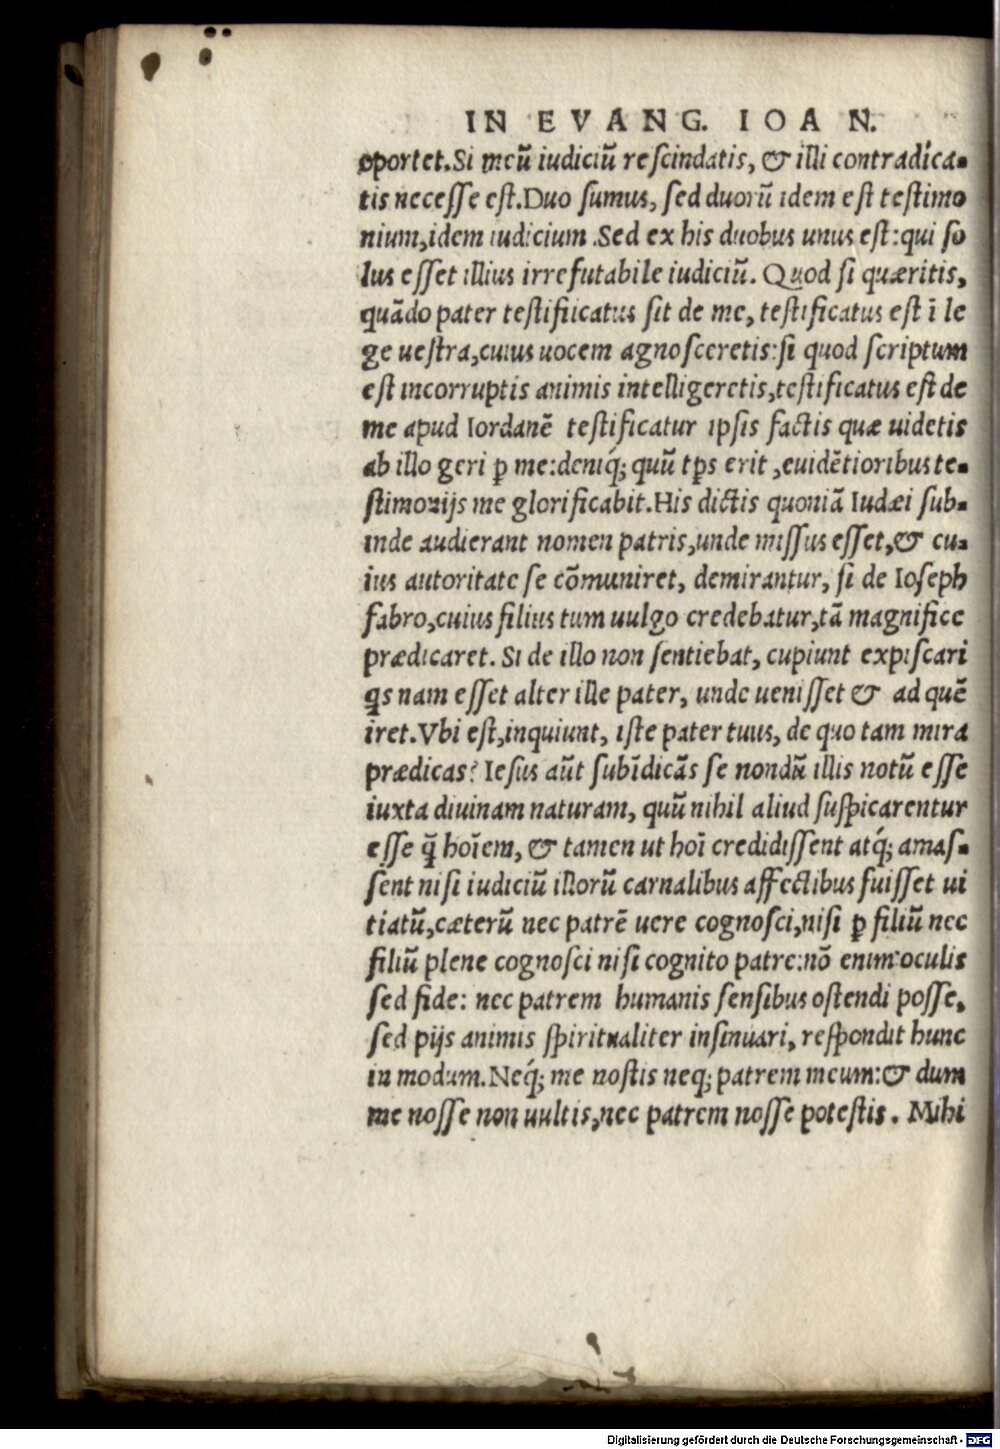 IN EVANG. IOAN.
oportet. Si meū iudiciū rescindatis, & illi contradica-
tis necesse est. Duo sumus, sed duorū idem est testimo
nium, idem iudicium. Sed ex his duobus unus est: qui so
lus esset illius irrefutabile iudiciū. Quod si quæritis,
quādo pater testifiicatus sit de me, testificatus est ī le
ge uestra, cuius uocem agnosceretis: si quod scriptum
est incorruptis animis intelligeretis, testificatus est de
me apud Iordanē testificatur ipsis factis quæ uidetis
ab illo geri ꝑ me: deniq́; quū tp̄s erit, euidētioribus te-
stimonijs me glorificabit. His dictis quoniā Iudæi sub-
inde audierant nomen patris, unde missus esset, & cu-
ius autoritate se cōmuniret, demirantur, si de Ioseph
fabro, cuius filius tum uulgo credebatur, tā magnifice
prædicaret. Si de illo non sentiebat, cupiunt expiscari
qs nam esset alter ille pater, unde uenisset & ad quē
iret. Vbi est, inquiunt, iste pater tuus, de quo tam mira
prædicas? Iesus aūt subīdicās se nondū illis notū esse
iuxta diuinam naturam, quū nihil aliud suspicarentur
esse q̄̃ hoīem, & tamen ut hoī credidissent atq́; amas-
sent nisi iudiciū illorū carnalibus affectibus fuisset ui
tiatū, cæterū nec patrē uere cognosci, nisi ꝑ filiū nec
filiū plene cognosci nisi cognito patre: nō enim oculis
sed fide: nec patrem humanis sensibus ostendi posse,
sed pijs animis spiritualiter insinuari, respondit hunc
in modum. Neq́; me nostis neq; patrem meum: & dum
me nosse non uultis, nec patrem nosse potestis. Mihi
Digitalisierung gefördert durch die Deutsche Forschungsgemeinschaft - DFG